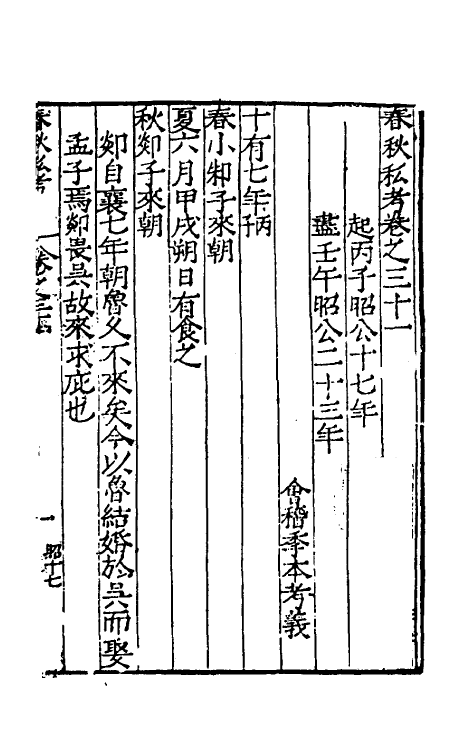 春秋私考卷之三十一
起丙子昭公十七年
盡壬午昭公二十三年
會稽季本考義
十有七年丙子
春小邾子來朝
夏六月甲戌朔日有食之
秋郯子來朝
郯自襄七年朝魯久不來矣今以魯結婚於吳而娶
孟子焉郯畏吳故來求庇也
春秋私考
一
昭十七